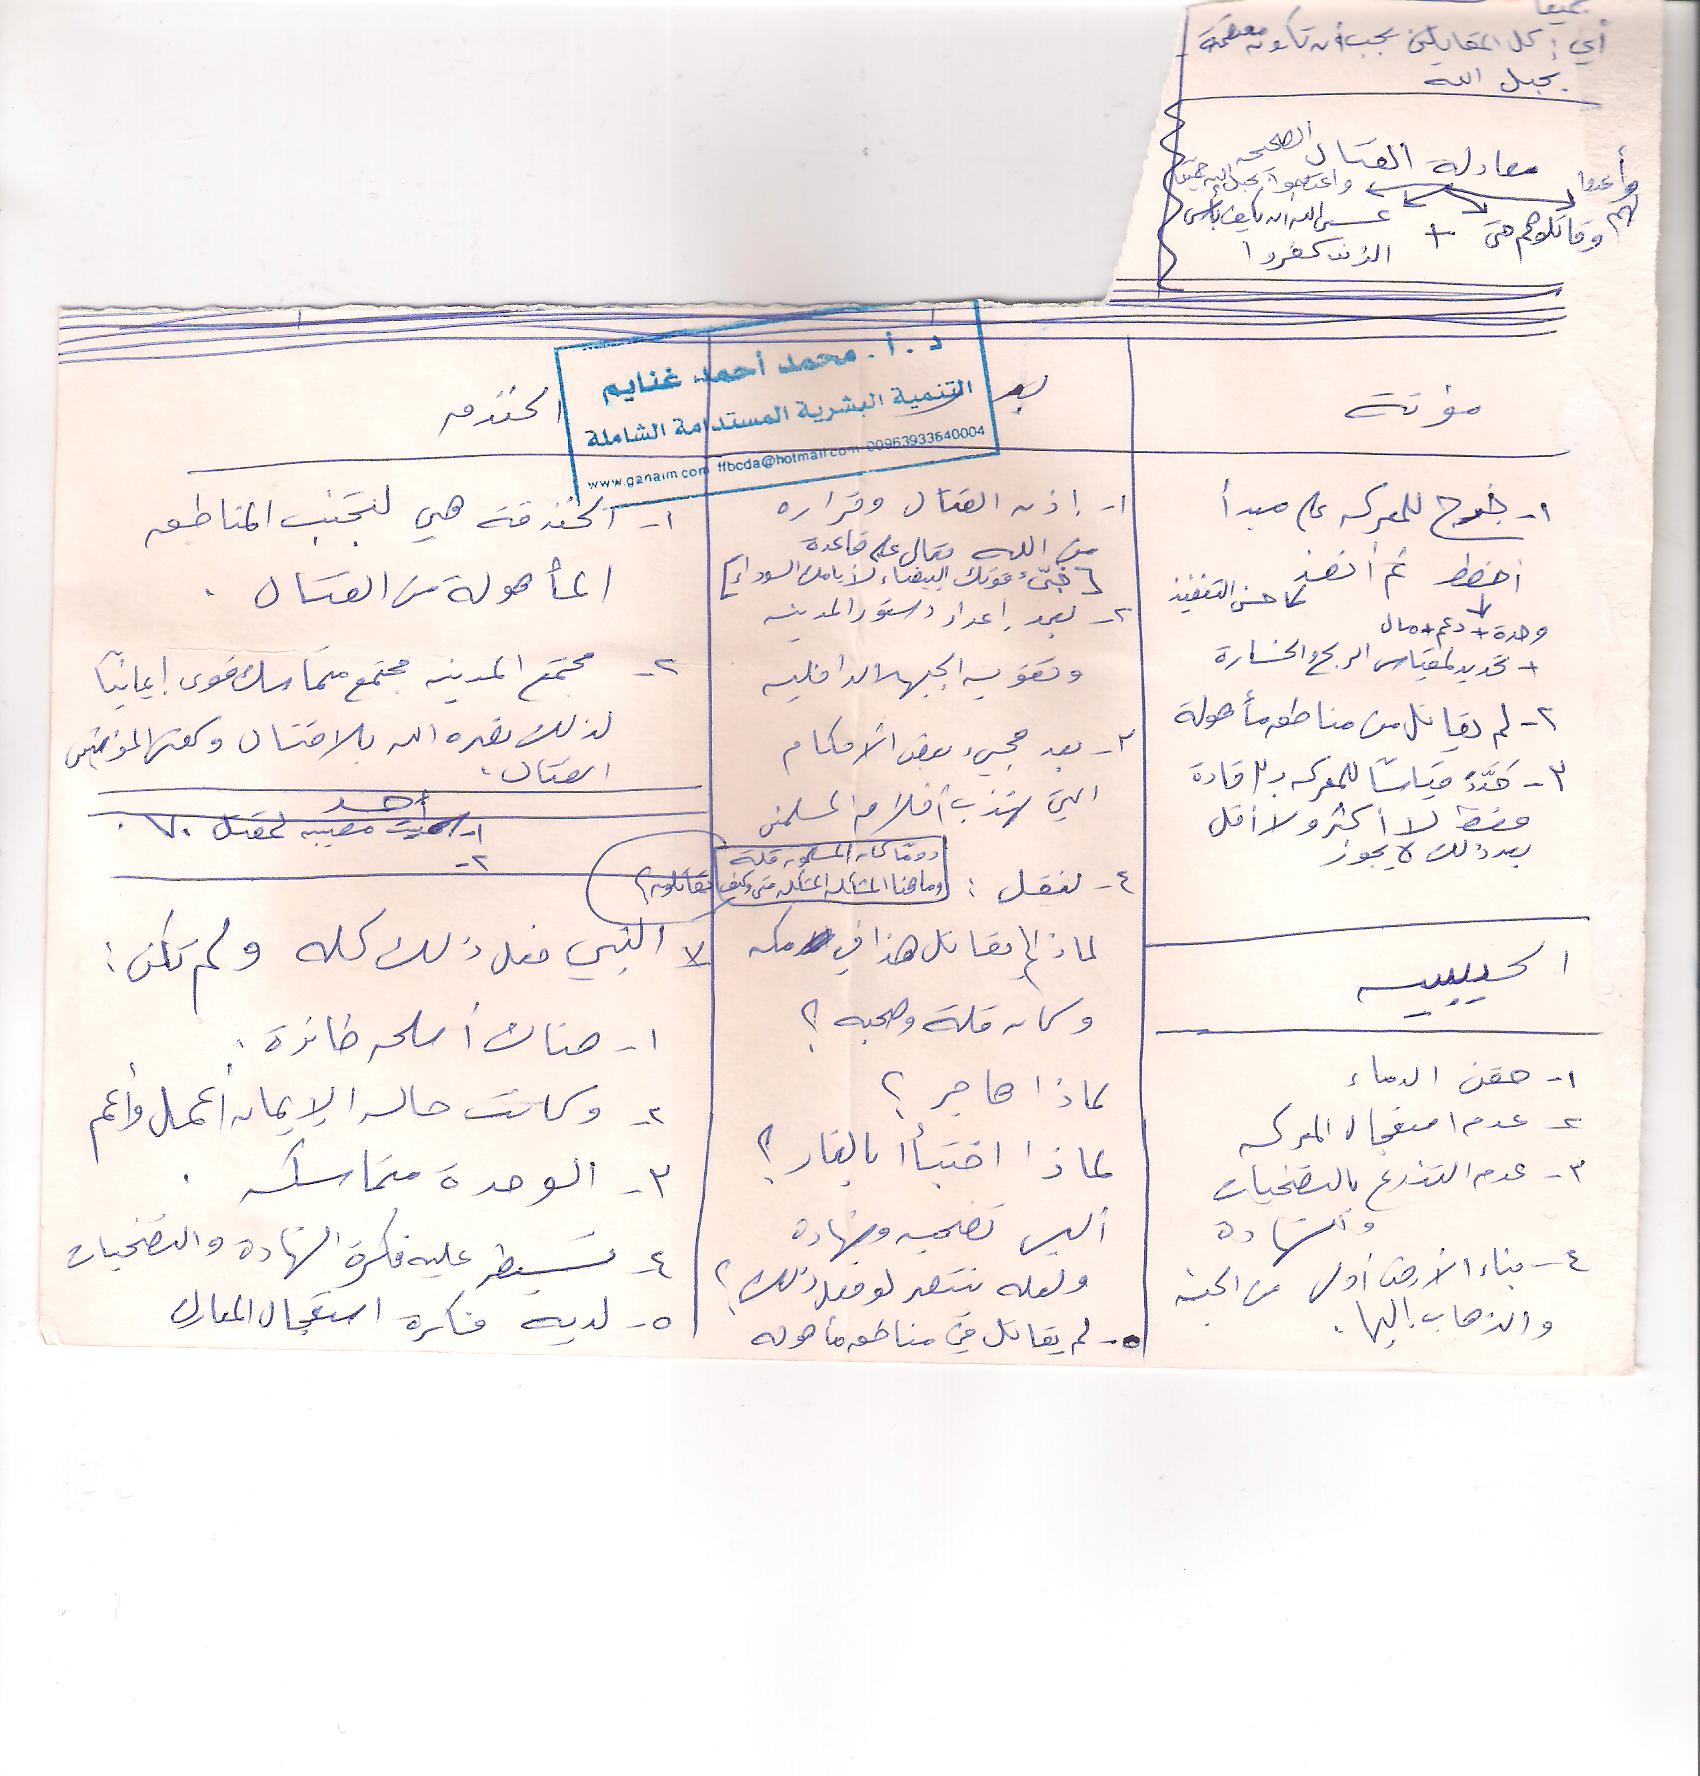 جميعا
أي: كل المقاييس يجب أن تكون معتصمة
بحبل الله
معادلة القتال الصحيحة
وأعدوا لهم
واعتصموا بحبل الله جميعا
وقاتلوهم حتى + عسى الله أن يكف بأس
الذين كفروا
د.أ. محمد أحمد غنايم
التنمية البشرية المستدامة الشاملة
www.ganaim.com ffbcda@hotmail.com 00963933640004
مؤتة
١- خرج للمعركة على مبدأ
أخطط ثم أنفذ
كما حسن التنفيذ
وحدة + دعم + مال
+ تحديد لمقياس الربح والخسارة
٢- لم يقاتل من مناطق مأهولة
٣- حَدَّدَ قياسًا للمعركة بـ ٣ قادة
فقط لا أكثر ولا أقل
بعد ذلك لا يجوز
١- حقن الدماء
٢- عدم استعجال المعركة
٣- عدم التذرع بالتضحيات
والشهادة
٤- بناء الأرض أولى من الجنة
والذهاب إليها.
بدر
١- إذن القتال وقراره
من الله تعالى على قاعدة
[خبّئ قرشك البيضاء لأيامك السوداء]
٢- بعد إعداد دستور المدينة
وتقوية الجبهة الداخلية
٣- بعد مجيء بعض الأحكام
التي تهذب أخلاق المسلمين
دومًا كان المسلمون قلة
وما هنا المشكلة المشكلة متى وكيف تقاتلون؟
٤- لنقل:
لماذا لم يقاتل هذا في مكة
وكان قلة وصحبه؟
لماذا هاجر؟
لماذا اختبأ بالغار؟
أليس تضحية وشهادة
ولعله ينتصر لو فعل ذلك؟
٥- لم يقاتل في مناطق مأهولة
الخندق
١- الخندقة هي لتجنب المناطق
المأهولة من القتال.
٢- مجتمع المدينة مجتمع متماسك قوي إيمانيًا
لذلك نصره الله بلا قتال وكفى المؤمنين
القتال.
أحد
١- سميت مصيبة لمقتل ٧٠.
٢-
لا النبي فعل ذلك كله ولم تكن:
١- هناك أسلحة طائرة.
٢- وكانت حالة الإيمان أعمل وأعم
٣- الوحدة متماسكة.
٤- تسيطر عليه فكرة الشهادة والتضحيات
٥- لديه فكرة استعجال المعارك